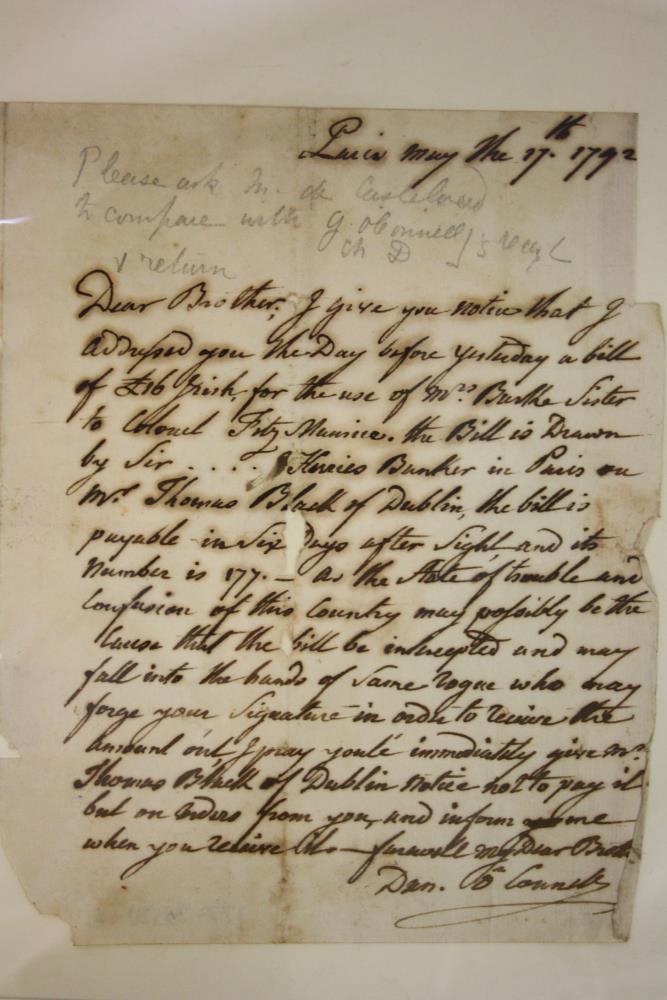 Paris may the 17th. 1792
Please ask M. de
to compare with G. O'Connell
Ch D
& return
Dear Brother, I give you notice that I
addressed you the Day before yesterday a bill
of £16 Irish, for the use of Mrs Burke Sister
to Colonel FitzMaurice. the Bill is Drawn
by Sir . . . . Herries Banker in Paris on
Mr. Thomas Black of Dublin, the bill is
payable in Six Days after Sight and its
Number is 177. — As the State of trouble and
Confusion of this Country may possibly be the
Cause that the bill be intercepted and may
fall into the hands of Same rogue who may
forge your Signature in order to receive the
amount on't, I pray you'll immediately give Mr.
Thomas Black of Dublin Notice not to pay it
but on orders from you, and inform me
when you receive — farewell my Dear Broth
Dan. O'Connell